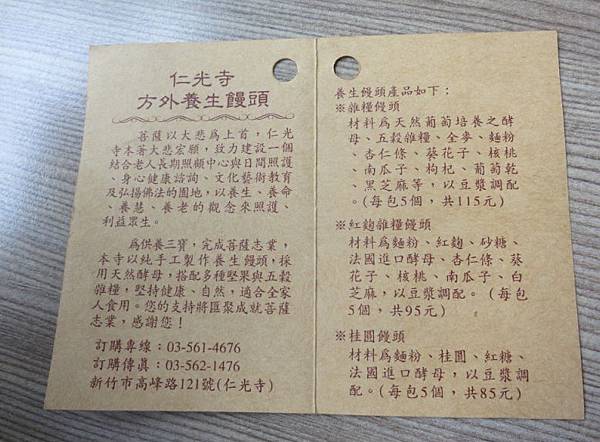 仁光寺
方外養生饅頭
菩薩以大悲為上首，仁光
寺本著大悲宏願，致力建設一個
結合老人長期照顧中心與日間照護
、身心健康諮詢、文化藝術教育
及弘揚佛法的園地，以養生、養命
、養慧、養老的觀念來照護、
利益眾生。
為供養三寶，完成菩薩志業，
本寺以純手工製作養生饅頭，採
用天然酵母，搭配多種堅果與五穀
雜糧，堅持健康、自然，適合全家
人食用。您的支持將匯聚成就菩薩
志業，感謝您！
訂購專線：03-561-4676
訂購傳真：03-562-1476
新竹市高峰路121號(仁光寺)
養生饅頭產品如下：
※雜糧饅頭
材料為天然葡萄培養之酵
母、五穀雜糧、全麥、麵粉
、杏仁條、葵花子、核桃
、南瓜子、枸杞、葡萄乾
、黑芝麻等，以豆漿調配
。(每包5個，共115元)
※紅麴雜糧饅頭
材料為麵粉、紅麴、砂糖、
法國進口酵母、杏仁條、葵
花子、核桃、南瓜子、白
芝麻，以豆漿調配。（每包
5個，共95元）
※桂圓饅頭
材料為麵粉、桂圓、紅糖、
法國進口酵母，以豆漿調
配。(每包5個，共85元)